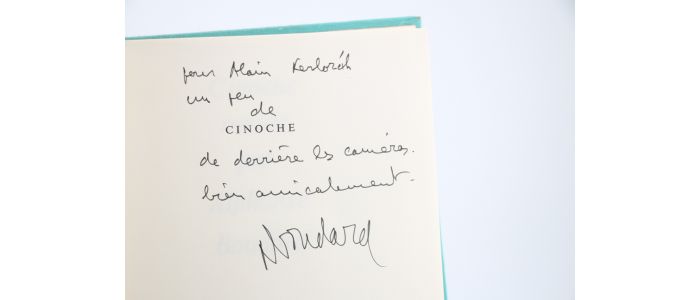 pour Alain Kerlozéh
un peu
de
CINOCHE
de derrière les caméras.
bien amicalement.
Boudard